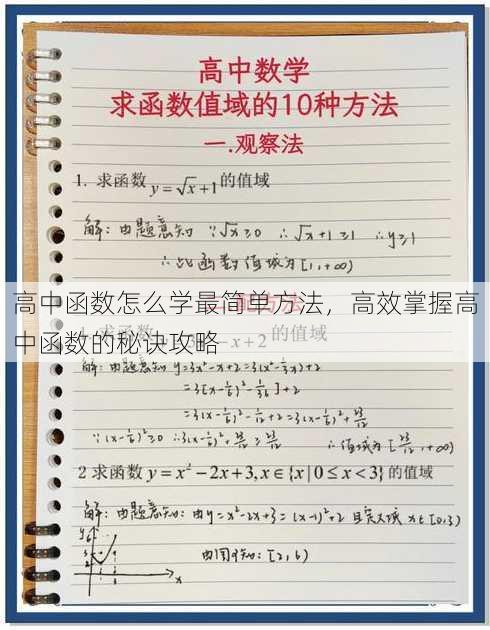 高中数学
求函数值域的10种方法
一.观察法
1. 求函数 y=√x+1 的值域
解：由题意知 ∵√x≥0 ∴√x+1≥1 ∴y≥1
∴此函数值域为[1,+∞)
高中函数怎么学最简单方法，高效掌握高
中函数的秘诀攻略
求函数 -x+2 的值域
解：由题意知 y=3x²-x+2=3(x²-⅓x)+2
=3[(x-1/6)²-1/36]+2
=3(x-1/6)²-1/12+2=3(x-1/6)²+23/12
∵(x-1/6)²≥0 ∴3(x-1/6)²+23/12≥23/12 ∴值域为[23/12,+∞)
2 求函数 y=x²-2x+3,x∈{x|0≤x<3}的值域
解：由题意知：由y=x²-2x+3=(x-1)²+2 且定义域 x∈[0,3)
由图可知：[2,6)